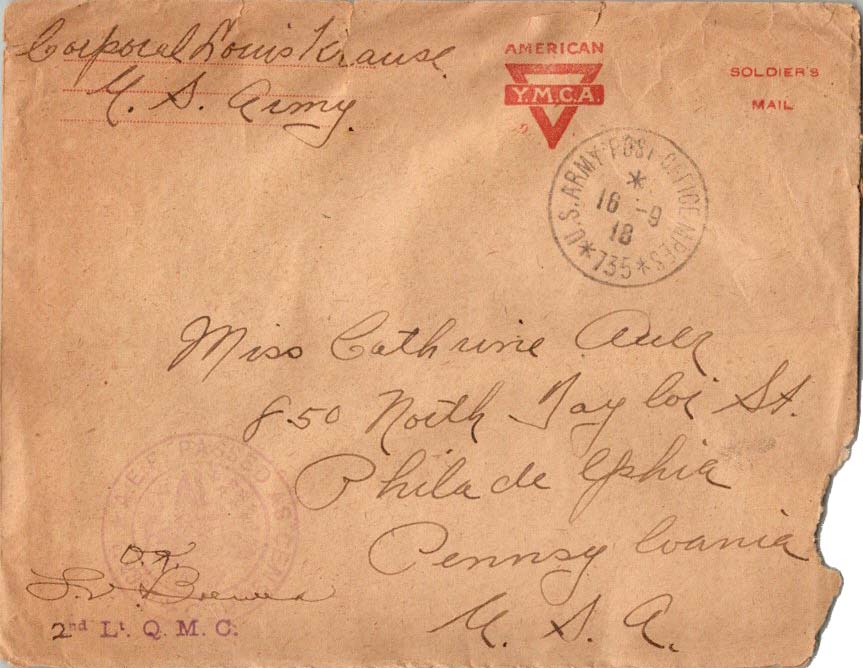 Corporal Louis Krause
U. S. Army.
AMERICAN
Y.M.C.A.
SOLDIER'S
MAIL
U.S. ARMY POST OFFICE M.P.E.S.
16 -9
18
*735*
Miss Cathrine Auer
850 North Taylor St.
Philadelphia
Pennsylvania
U. S. A.
A.E.F. PASSED AS CENSORED
O.K.
2nd Lt. Q. M. C.